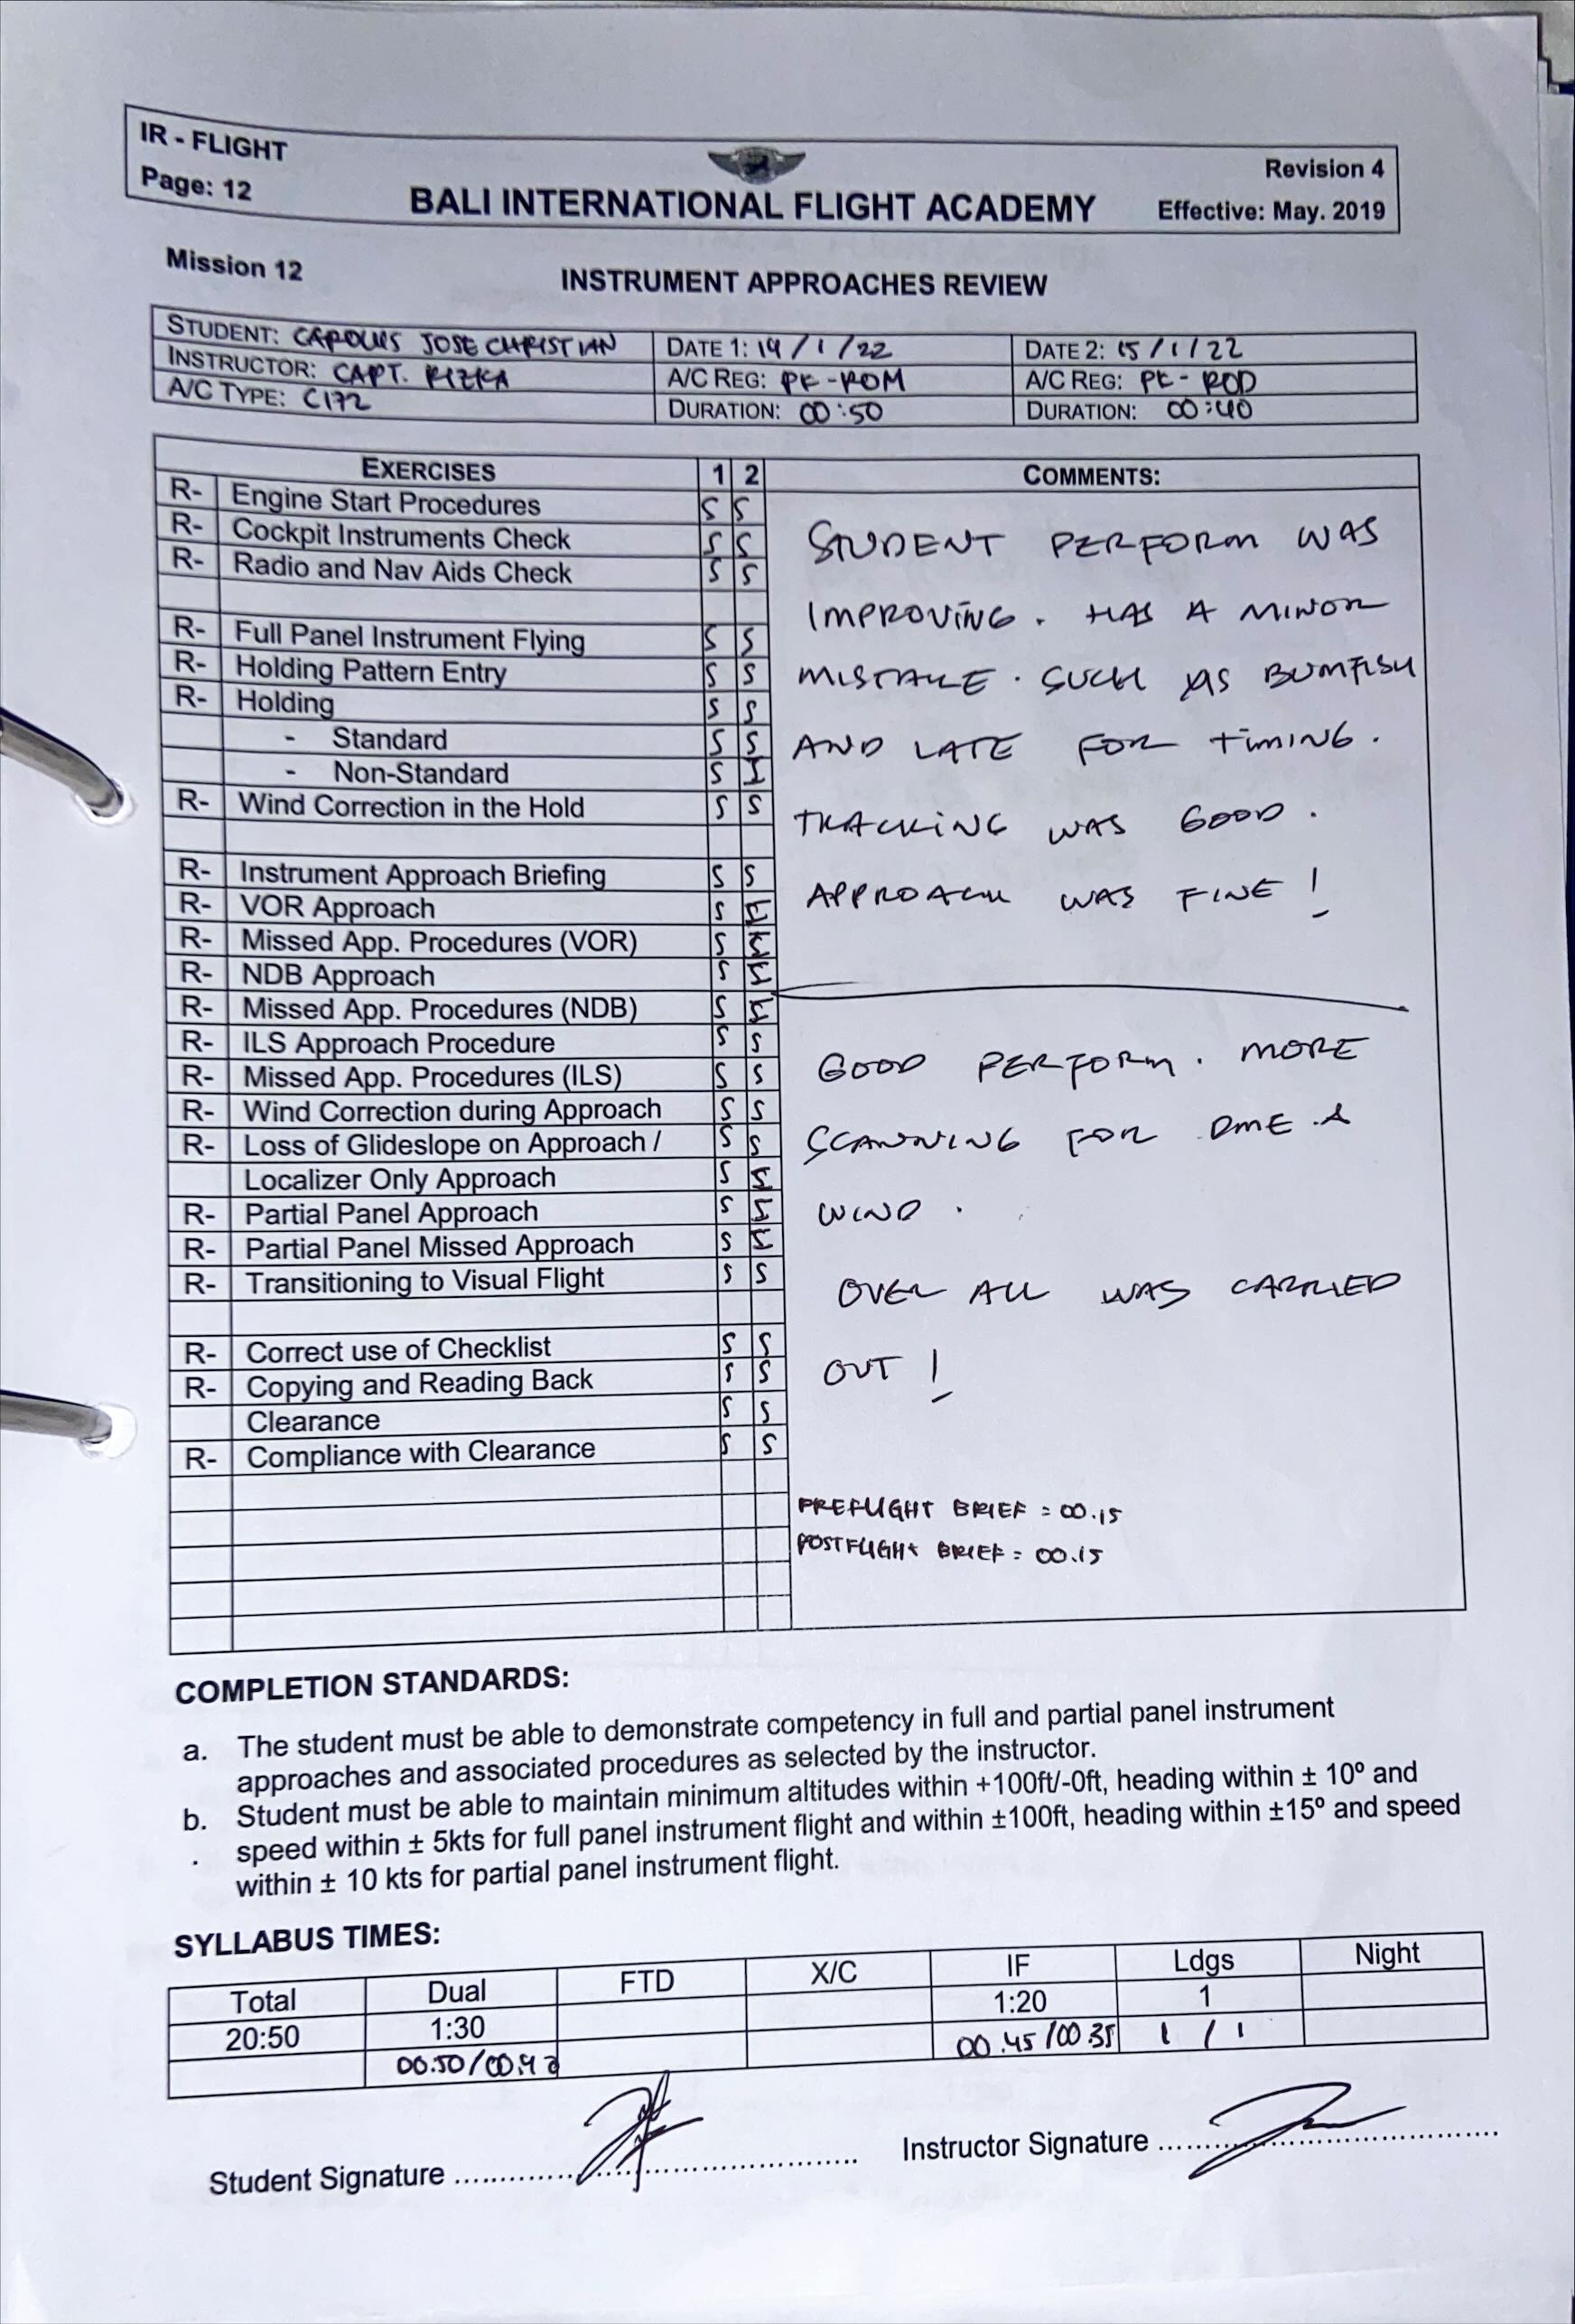 IR - FLIGHT
Page: 12
BALI INTERNATIONAL FLIGHT ACADEMY
Revision 4
Effective: May. 2019
Mission 12
INSTRUMENT APPROACHES REVIEW
STUDENT: CAROLUS JOSE CHRISTIAN DATE 1: 14 / 1 / 22 DATE 2: 15 / 1 / 22
INSTRUCTOR: CAPT. RIZKA A/C REG: PK-ROM A/C REG: PK-ROD
A/C TYPE: C172 DURATION: 00:50 DURATION: 00:40
EXERCISES 1 2
R- Engine Start Procedures S S
R- Cockpit Instruments Check S S
R- Radio and Nav Aids Check S S
R- Full Panel Instrument Flying S S
R- Holding Pattern Entry S S
R- Holding S S
- Standard S S
- Non-Standard S
R- Wind Correction in the Hold S S
R- Instrument Approach Briefing S S
R- VOR Approach S
R- Missed App. Procedures (VOR) S
R- NDB Approach S
R- Missed App. Procedures (NDB) S
R- ILS Approach Procedure S S
R- Missed App. Procedures (ILS) S S
R- Wind Correction during Approach S S
R- Loss of Glideslope on Approach / S S
Localizer Only Approach S
R- Partial Panel Approach S
R- Partial Panel Missed Approach S
R- Transitioning to Visual Flight S S
R- Correct use of Checklist S S
R- Copying and Reading Back S S
Clearance S S
R- Compliance with Clearance S S
COMMENTS:
STUDENT PERFORM WAS
IMPROVING. HAS A MINOR
MISTAKE. SUCH AS BUMFISH
AND LATE FOR TIMING.
TRACKING WAS GOOD.
APPROACH WAS FINE !
GOOD PERFORM. MORE
SCANNING FOR DME &
WIND.
OVER ALL WAS CARRIED
OUT !
PREFLIGHT BRIEF = 00.15
POSTFLIGHT BRIEF = 00.15
COMPLETION STANDARDS:
a. The student must be able to demonstrate competency in full and partial panel instrument
approaches and associated procedures as selected by the instructor.
b. Student must be able to maintain minimum altitudes within +100ft/-0ft, heading within ± 10º and
speed within ± 5kts for full panel instrument flight and within ±100ft, heading within ±15º and speed
within ± 10 kts for partial panel instrument flight.
SYLLABUS TIMES:
Total Dual FTD X/C IF Ldgs Night
20:50 1:30 1:20 1
00:50/00:40 00.45/00 35 1 / 1
Student Signature
Instructor Signature